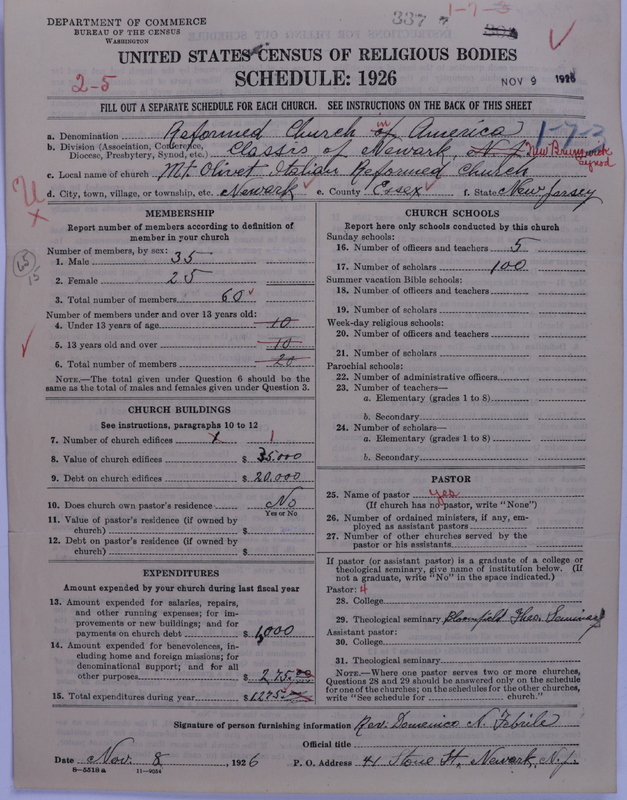 DEPARTMENT OF COMMERCE
BUREAU OF THE CENSUS
WASHINGTON
337
1-7-3
UNITED STATES CENSUS OF RELIGIOUS BODIES
SCHEDULE: 1926
2-5
NOV 9 1926
FILL OUT A SEPARATE SCHEDULE FOR EACH CHURCH. SEE INSTRUCTIONS ON THE BACK OF THIS SHEET
a. Denomination Reformed Church of in America
1-7-3
b. Division (Association, Conference, Diocese, Presbytery, Synod, etc.) Classis of Newark, N. J. New Brunswick Synod
c. Local name of church Mt. Olivet Italian Reformed Church
d. City, town, village, or township, etc. Newark e. County Essex f. State New Jersey
MEMBERSHIP
Report number of members according to definition of
member in your church
Number of members, by sex:
1. Male 35
2. Female 25
3. Total number of members 60
Number of members under and over 13 years old:
4. Under 13 years of age 10
5. 13 years old and over 10
6. Total number of members 20
NOTE.—The total given under Question 6 should be the
same as the total of males and females given under Question 3.
CHURCH BUILDINGS
See instructions, paragraphs 10 to 12
7. Number of church edifices x 1
8. Value of church edifices $ 35.000
9. Debt on church edifices $ 20.000
10. Does church own pastor's residence No
Yes or No
11. Value of pastor's residence (if owned by
church) $
12. Debt on pastor's residence (if owned by
church) $
EXPENDITURES
Amount expended by your church during last fiscal year
13. Amount expended for salaries, repairs,
and other running expenses; for im-
provements or new buildings; and for
payments on church debt $ 1,000
14. Amount expended for benevolences, in-
cluding home and foreign missions; for
denominational support; and for all
other purposes $ 275.
15. Total expenditures during year $ 1275.
CHURCH SCHOOLS
Report here only schools conducted by this church
Sunday schools:
16. Number of officers and teachers 5
17. Number of scholars 100
Summer vacation Bible schools:
18. Number of officers and teachers
19. Number of scholars
Week-day religious schools:
20. Number of officers and teachers
21. Number of scholars
Parochial schools:
22. Number of administrative officers
23. Number of teachers—
a. Elementary (grades 1 to 8)
b. Secondary
24. Number of scholars—
a. Elementary (grades 1 to 8)
b. Secondary
PASTOR
25. Name of pastor yes
(If church has no pastor, write "None")
26. Number of ordained ministers, if any, em-
ployed as assistant pastors
27. Number of other churches served by the
pastor or his assistants
If pastor (or assistant pastor) is a graduate of a college or
theological seminary, give name of institution below. (If
not a graduate, write "No" in the space indicated.)
Pastor: 4
28. College
29. Theological seminary Bloomfield Theo. Seminary
Assistant pastor:
30. College
31. Theological seminary
NOTE.—Where one pastor serves two or more churches,
Questions 28 and 29 should be answered only on the schedule
for one of the churches; on the schedules for the other churches,
write "See schedule for church."
Signature of person furnishing information Rev. Domenico N. Febrile
Official title
Date Nov. 8, 1926 P. O. Address 41 Stone St., Newark, N. J.
8-5518 a 11-9054